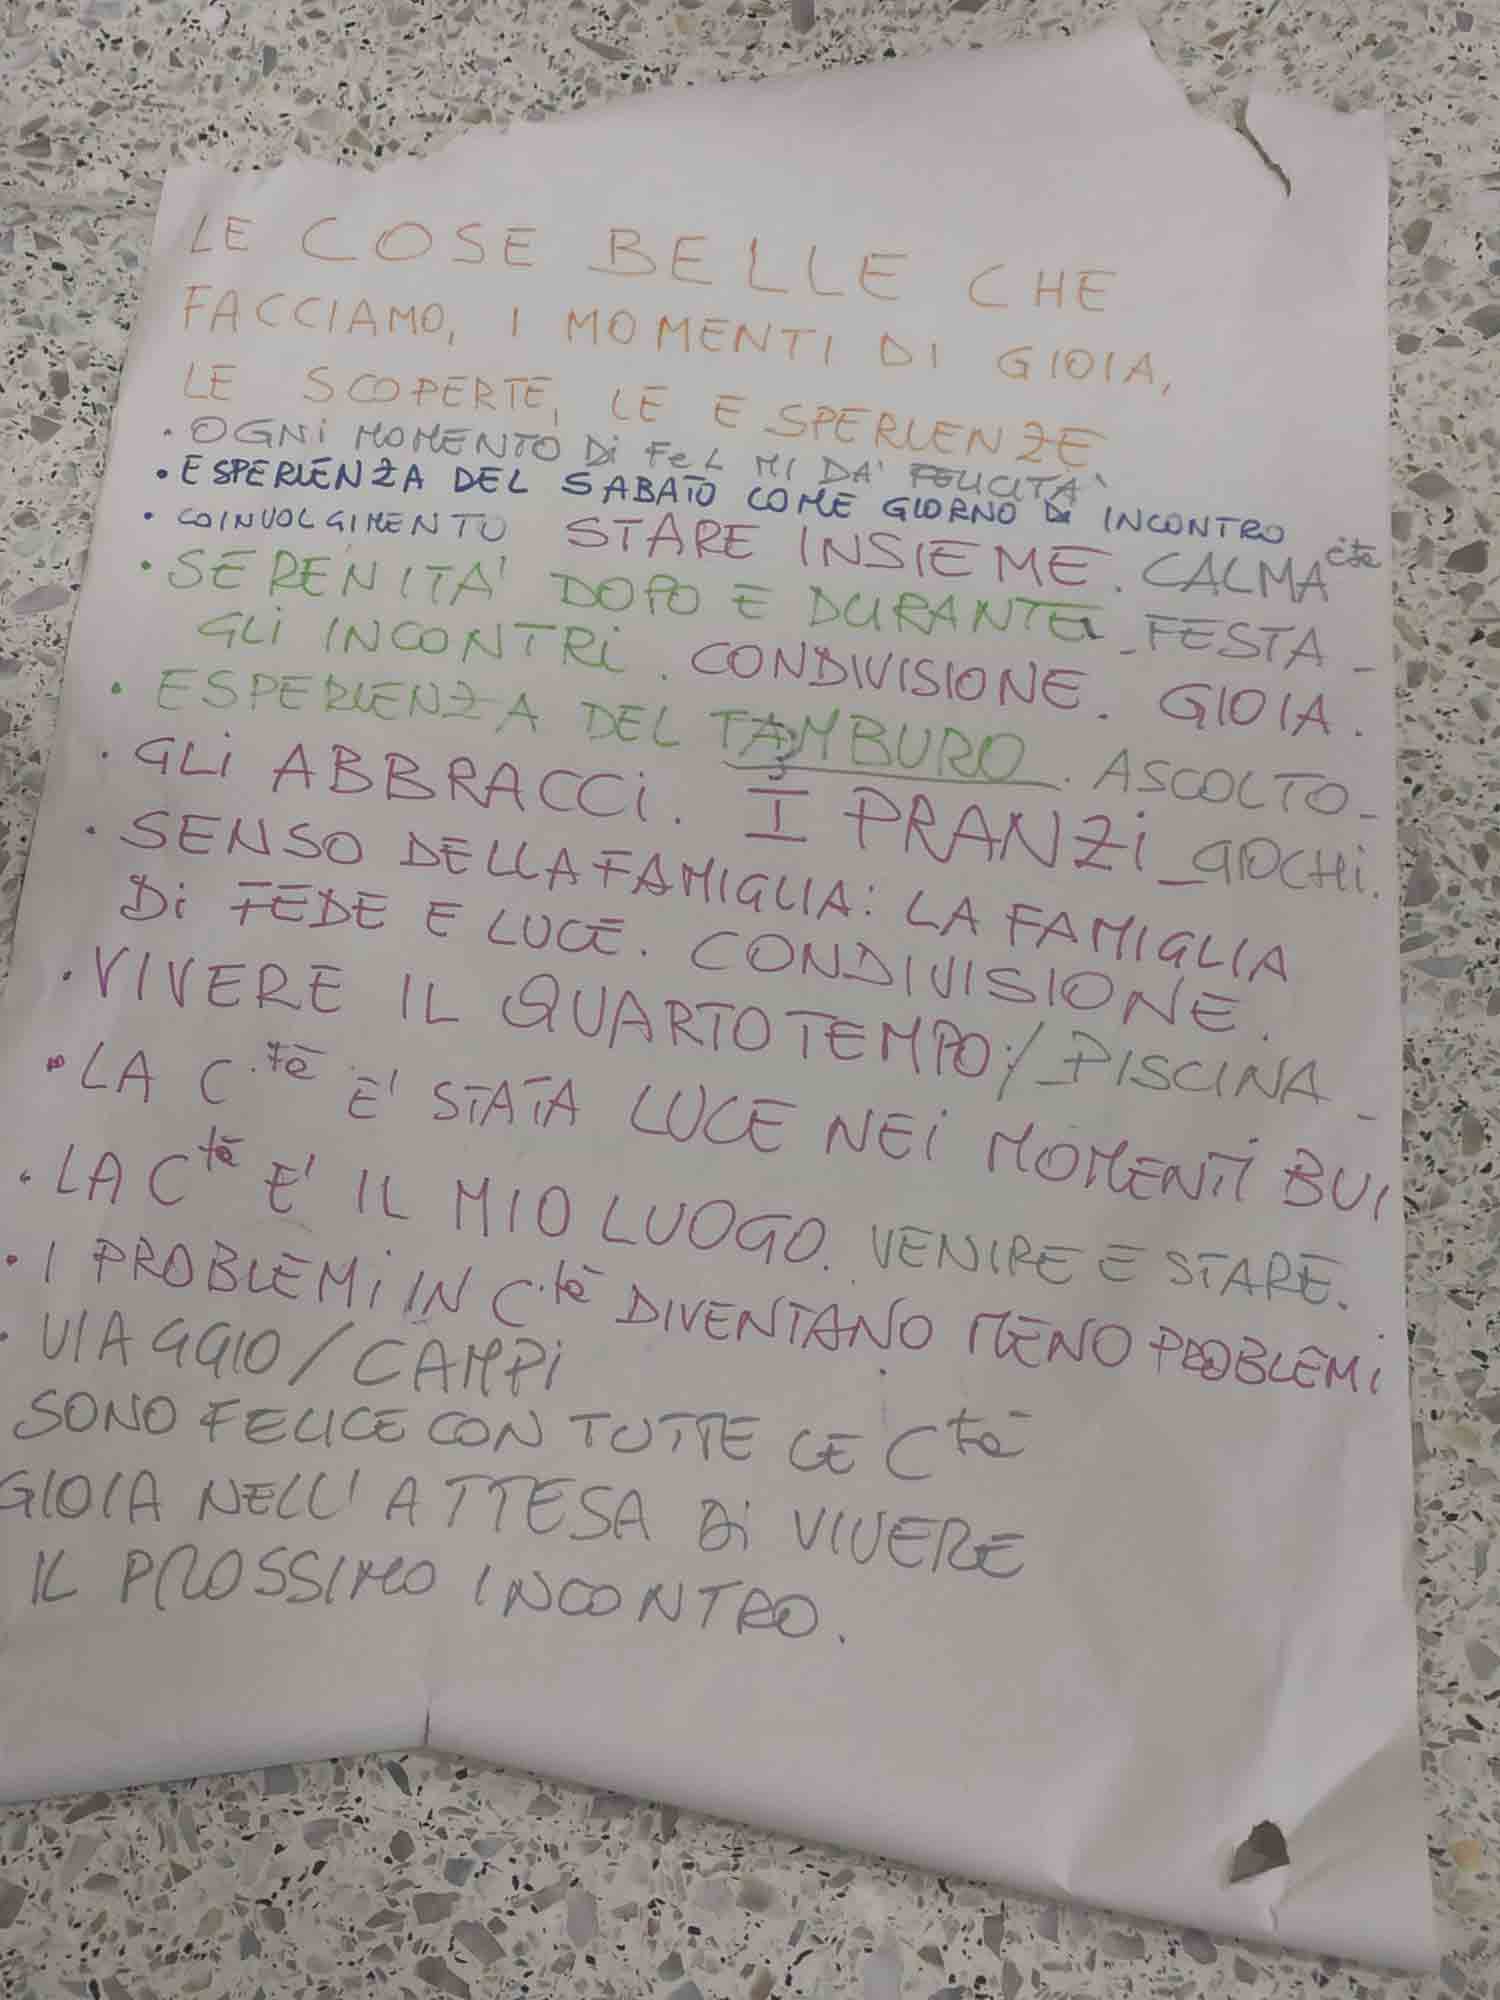 LE COSE BELLE CHE
FACCIAMO, I MOMENTI DI GIOIA,
LE SCOPERTE, LE ESPERIENZE
• OGNI MOMENTO DI FeL MI DA' FELICITA'
• ESPERIENZA DEL SABATO COME GIORNO DI INCONTRO
• COINVOLGIMENTO STARE INSIEME. CALMA
• SERENITA' DOPO E DURANTE - FESTA -
GLI INCONTRI. CONDIVISIONE. GIOIA.
• ESPERIENZA DEL TAMBURO. ASCOLTO -
• GLI ABBRACCI. I PRANZI - GIOCHI.
• SENSO DELLA FAMIGLIA: LA FAMIGLIA
DI FEDE E LUCE. CONDIVISIONE.
• VIVERE IL QUARTO TEMPO:/ PISCINA -
• LA C.tà E' STATA LUCE NEI MOMENTI BUI
• LA Ctà E' IL MIO LUOGO. VENIRE E STARE.
• I PROBLEMI IN C.tà DIVENTANO MENO PROBLEMI
• VIAGGIO/CAMPI
SONO FELICE CON TUTTE LE Ctà
GIOIA NELL'ATTESA DI VIVERE
IL PROSSIMO INCONTRO.